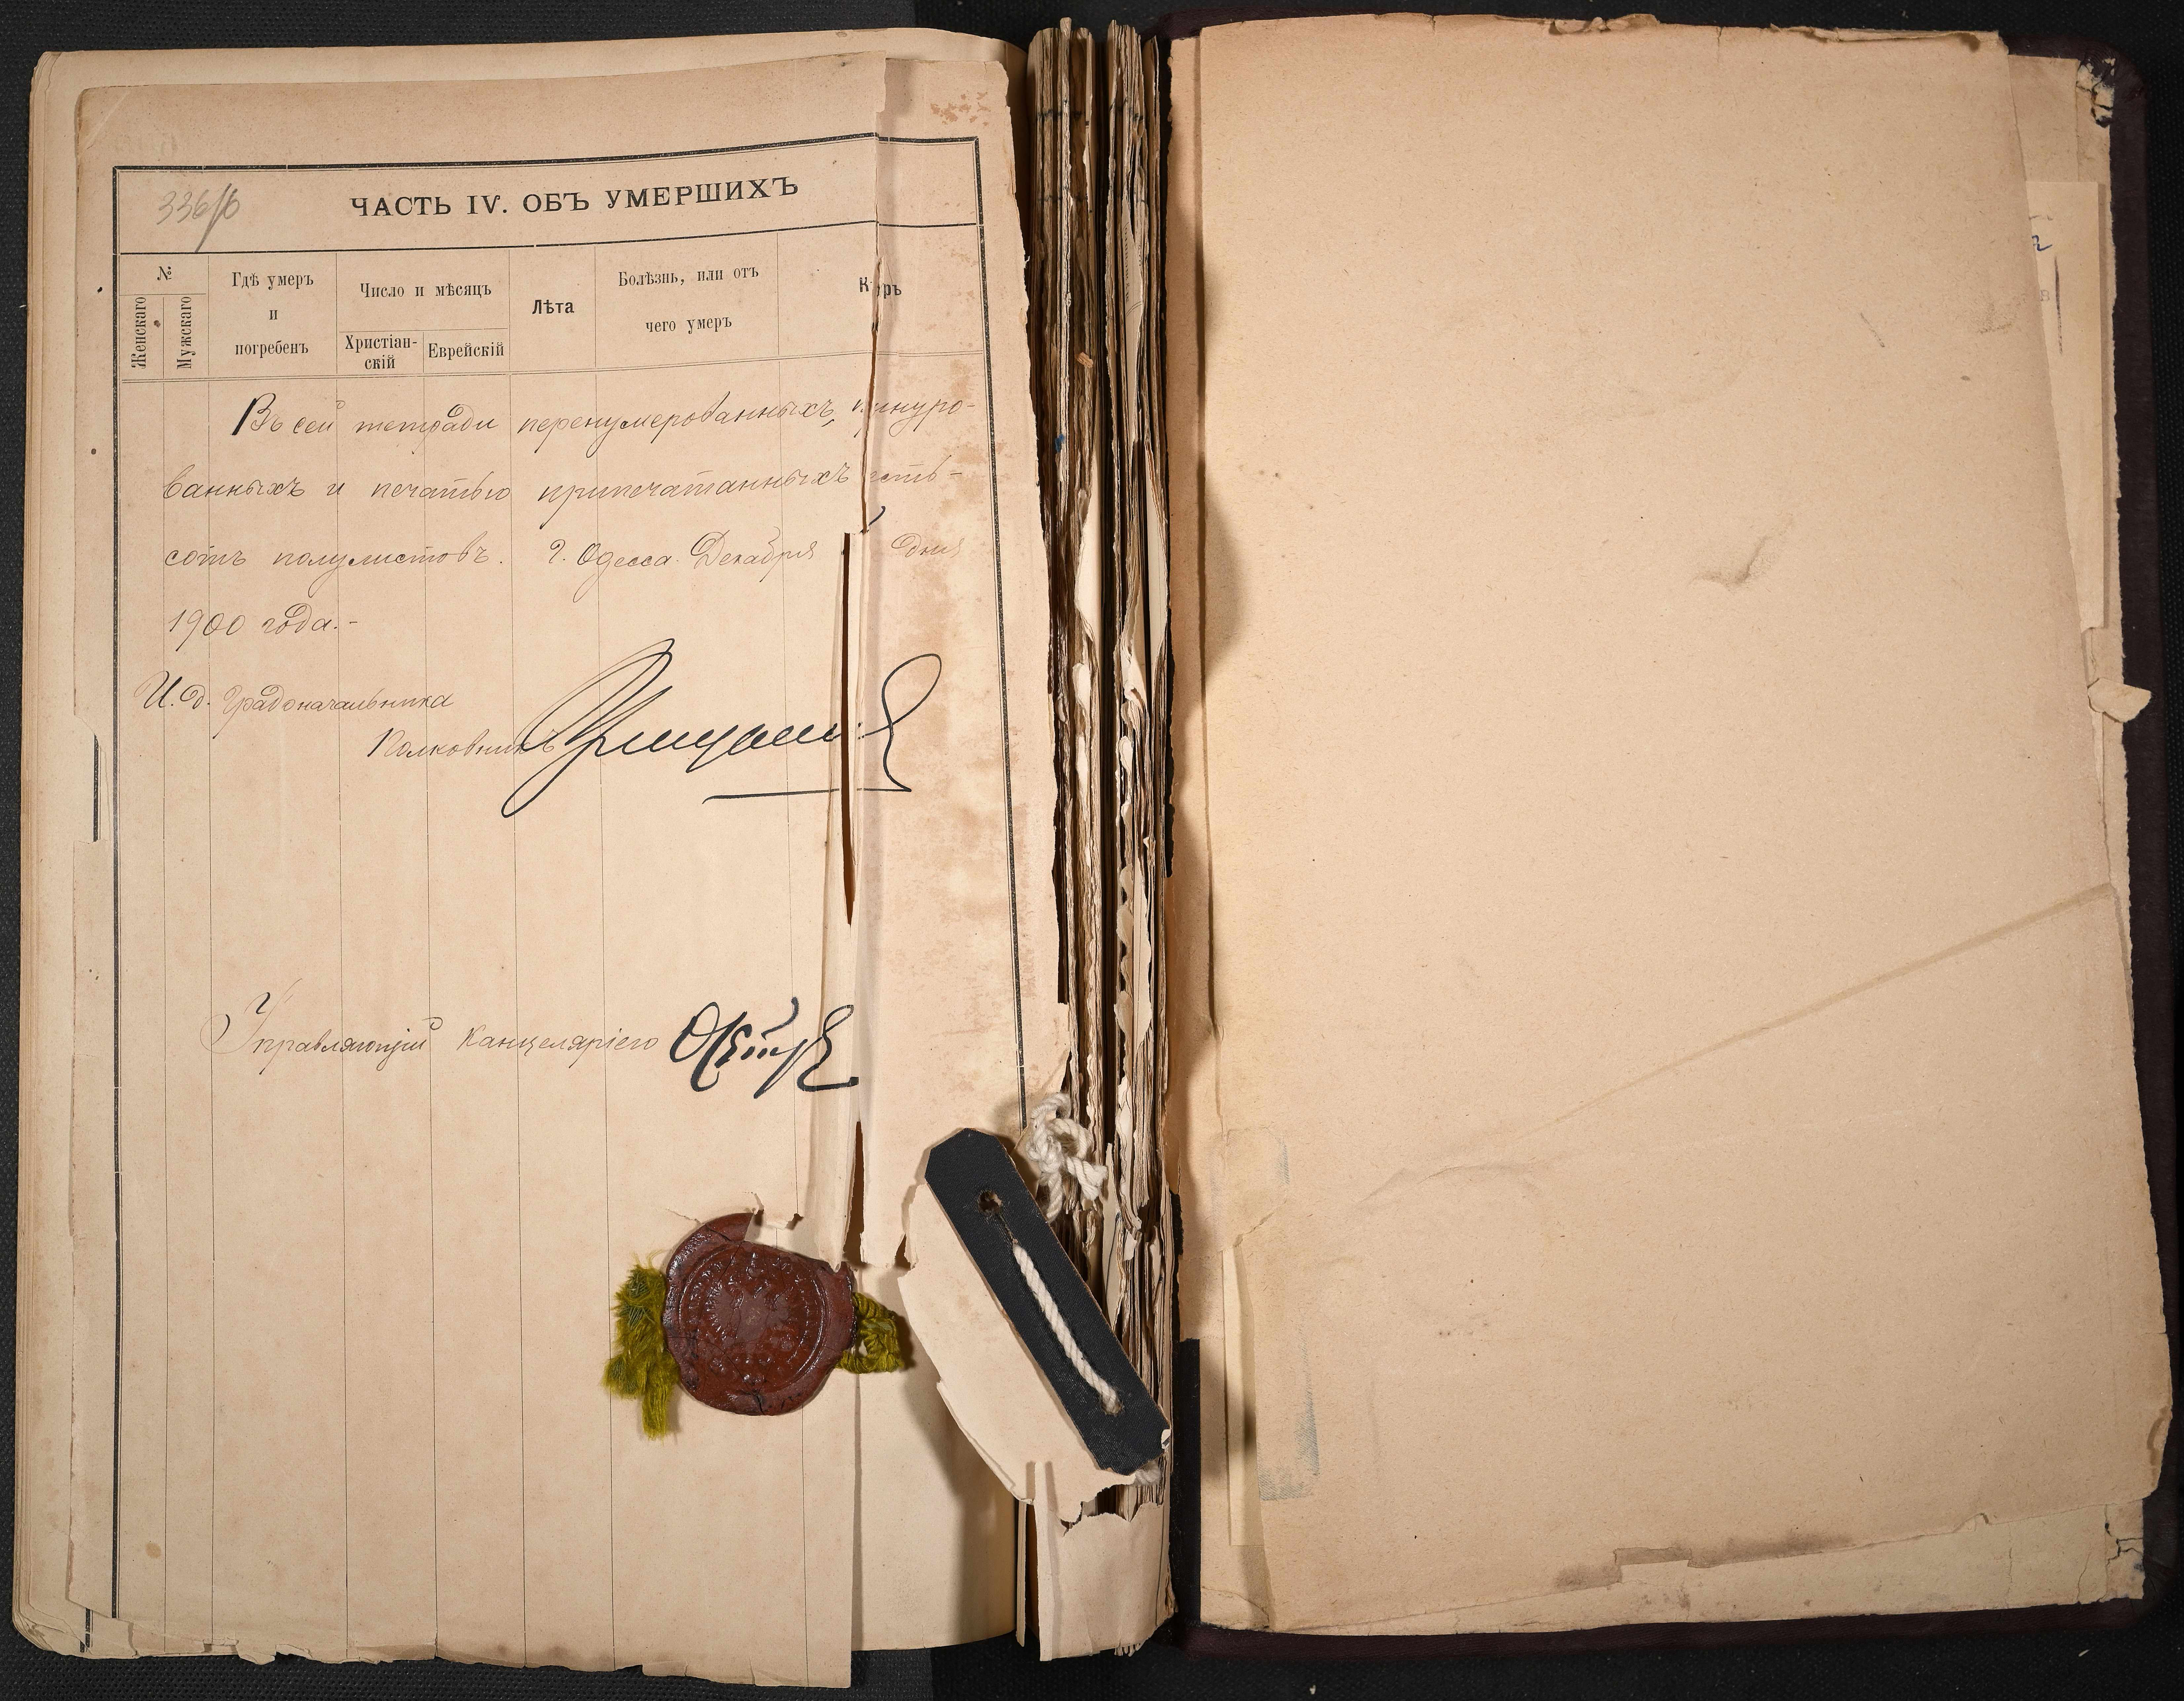 336/6
ЧАСТЬ IV. ОБЪ УМЕРШИХЪ
№
Женскаго
Мужскаго
Гдѣ умеръ
и
погребенъ
Число и мѣсяцъ
Христіан-
скій
Еврейскій
Лѣта
Болѣзнь, или отъ
чего умеръ
Въ сей тетради перенумерованныхъ, шнуро-
ванныхъ и печатью припечатанныхъ
сотъ полулистовъ. Г. Одесса. Декабря дня
1900 года.-
И. д. Градоначальника
Полковникъ
Управляющій Канцеляріею